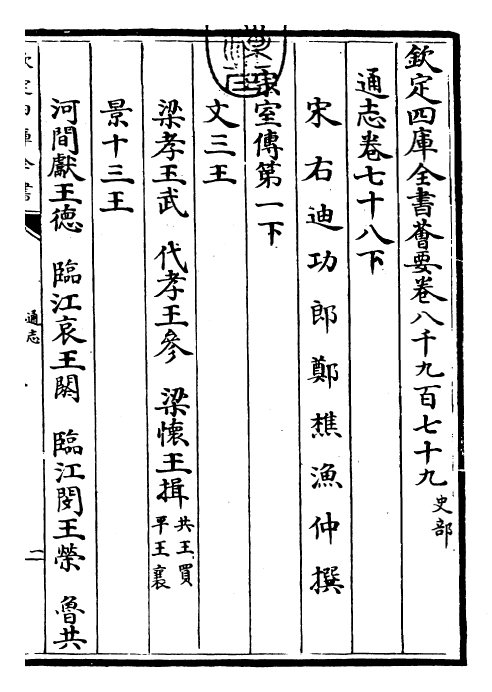 欽定四庫全書薈要卷八千九百七十九 史部
通志卷七十八下
宋右迪功郎鄭樵漁仲撰
宗室傳第一下
文三王
梁孝王武 代孝王參 梁懷王揖 共王買 平王襄
景十三王
河間獻王德 臨江哀王閼 臨江閔王榮 魯共
欽定四庫全書 通志 二